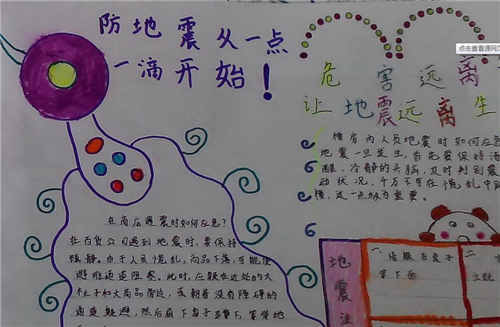 防地震从一点
一滴开始！
危害远离
让地震远离生
点击查看源网页
楼房内人员地震时如何应急？
地震一旦发生，首先要保持清
醒、冷静的头脑，及时判别震
动状况，千万不可在慌乱中
楼，这一点极为重要。
在商店遇震时如何应急？
在百货公司遇到地震时，要保持
镇静。由于人员慌乱，商品下落，可能使
避难通道阻塞。此时，应躲在近处的大
柱子和大商品旁边，或朝着没有障碍的
通道躲避，然后屈下身子蹲下，等待地
地
震
一
躲在桌子
等下面
二